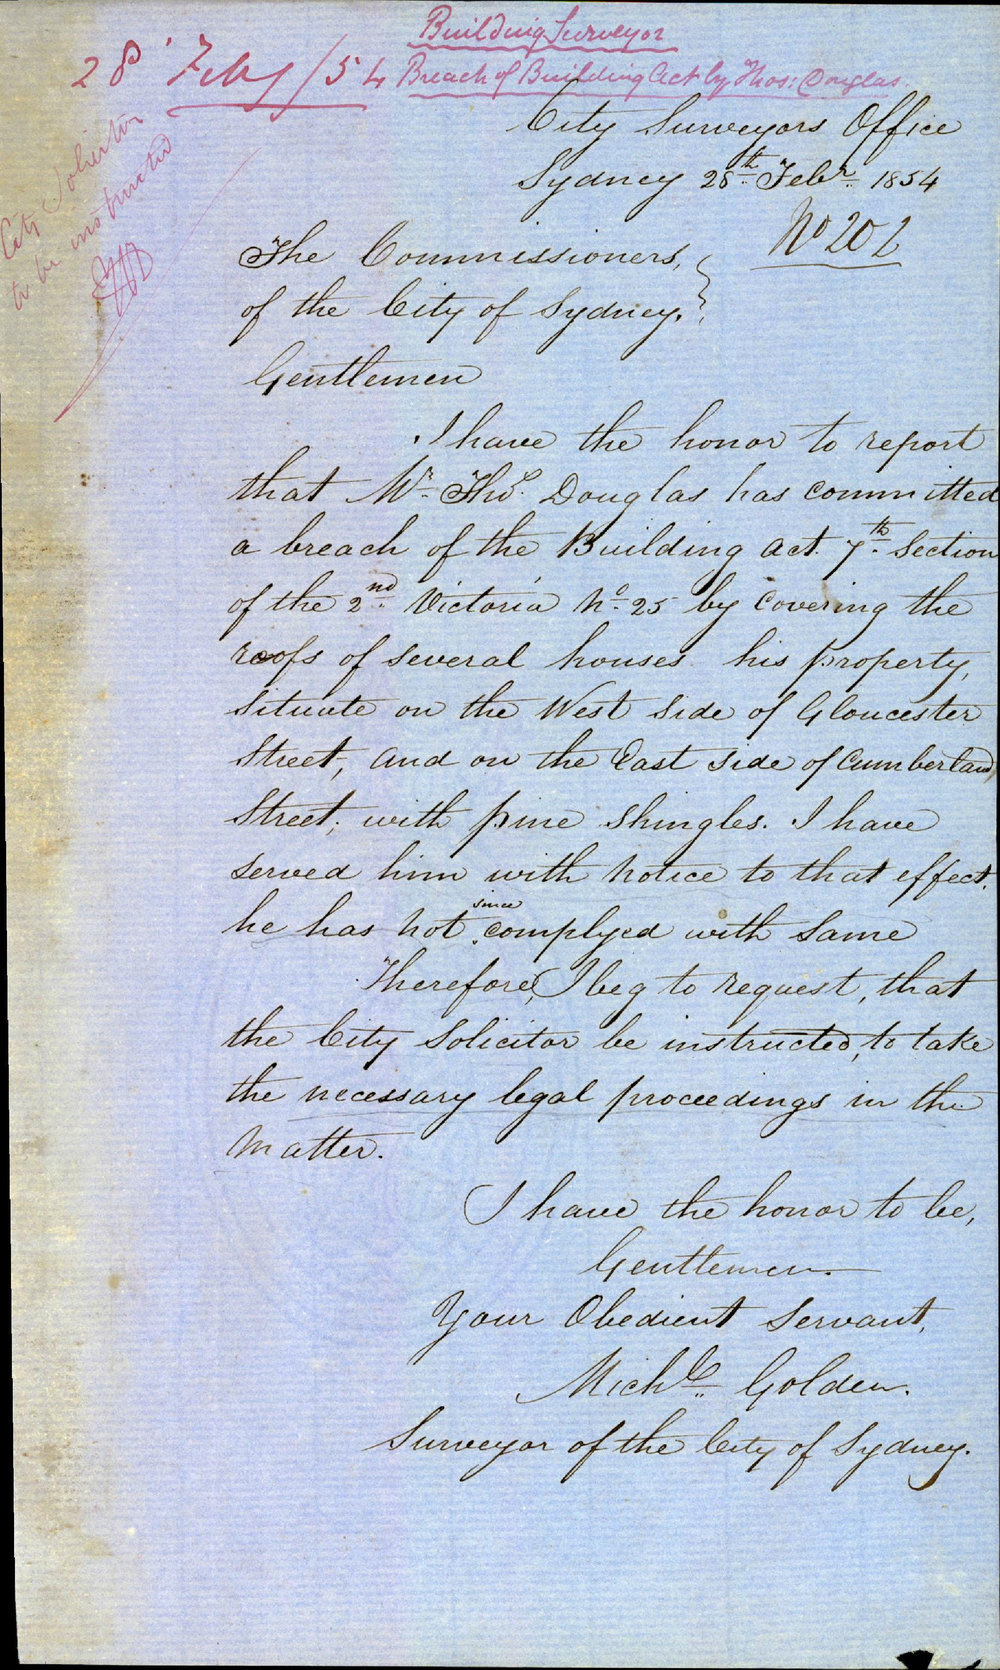 Building Surveyor
28 Feby/54 Breach of Building Act by Thos: Douglas.
City Solicitor
to be instructed
City Surveyors Office
Sydney 28th Febr. 1854
No 202
The Commissioners,
of the City of Sydney.
Gentlemen
I have the honor to report
that Mr. Thos. Douglas has committed
a breach of the Building Act. 7th Section
of the 2nd Victoria No. 25 by covering the
roofs of several houses his property,
situate on the West side of Gloucester
Street, and on the East side of Cumberland
Street; with pine shingles. I have
served him with notice to that effect.
he has not since complyed with same
Therefore, I beg to request, that
the City Solicitor be instructed, to take
the necessary legal proceedings in the
matter.
I have the honor to be,
Gentlemen.
Your Obedient Servant,
Michl. Golden.
Surveyor of the City of Sydney.